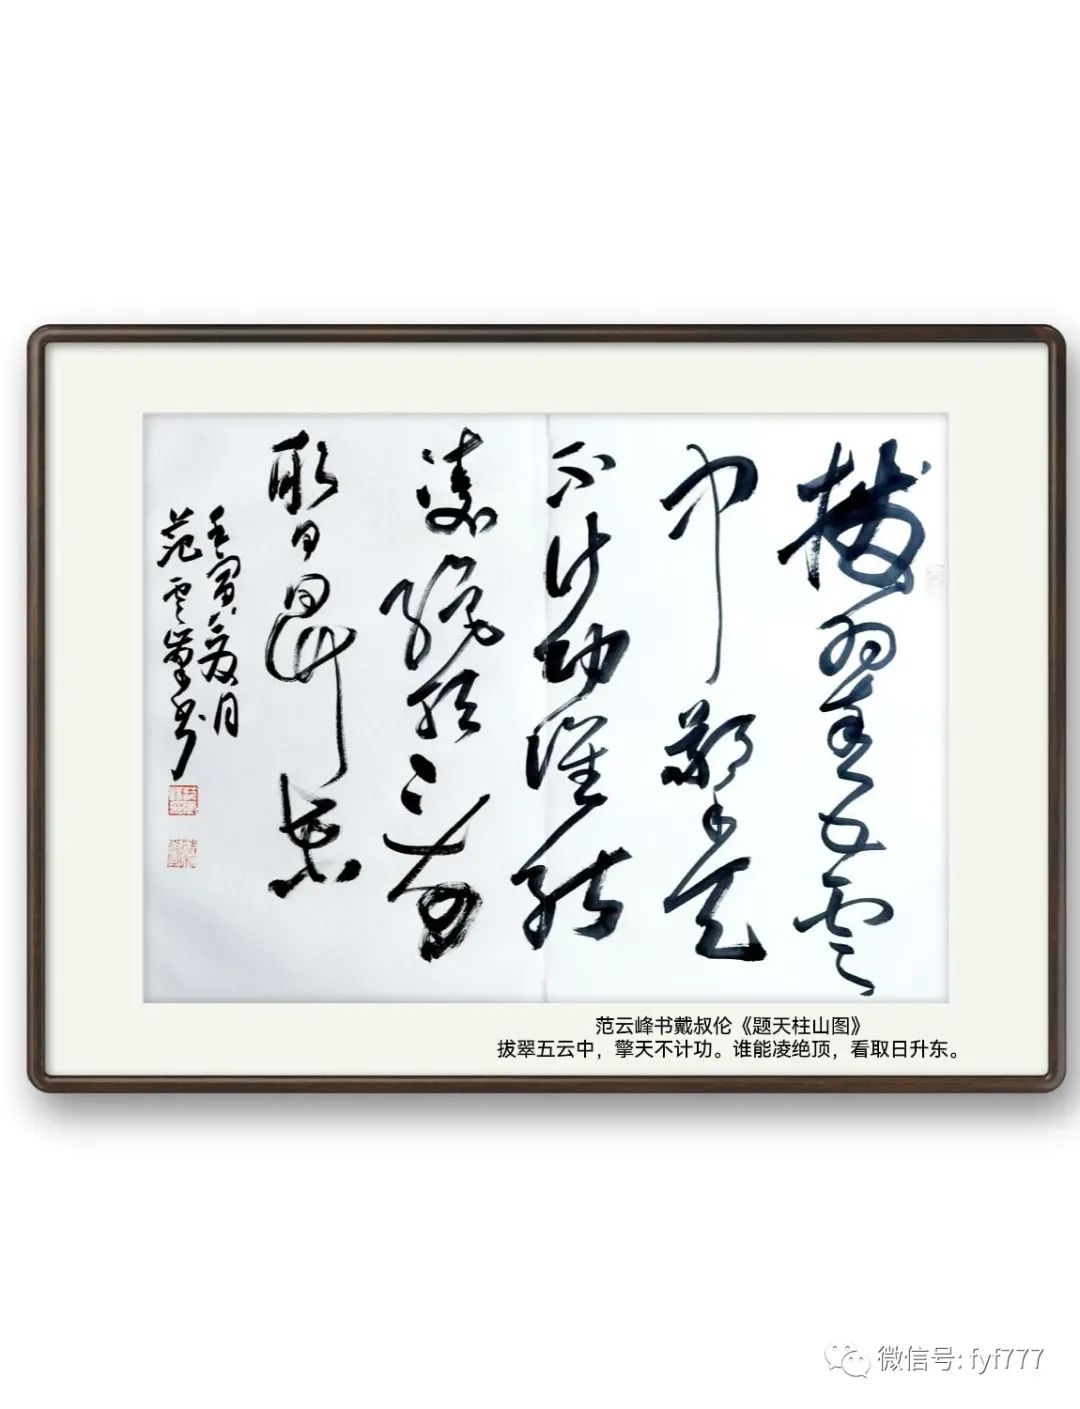 拔翠五雲
中擎天
不计功谁能
凌絕顶看
取日昇东
壬寅八月
范云峰书
范云峰书戴叔伦《题天柱山图》
拔翠五云中，擎天不计功。谁能凌绝顶，看取日升东。
微信号: fyf777